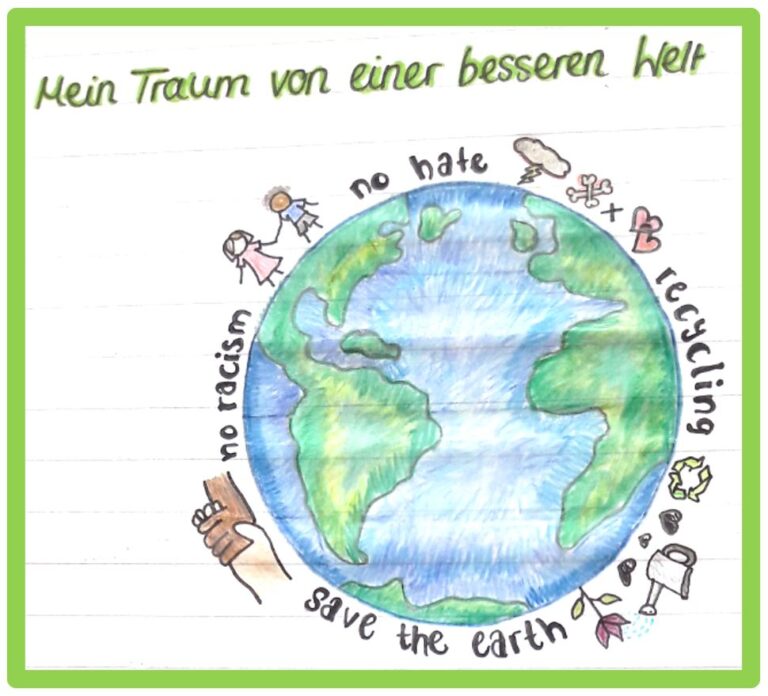 Mein Traum von einer besseren Welt
no hate
recycling
save the earth
no racism